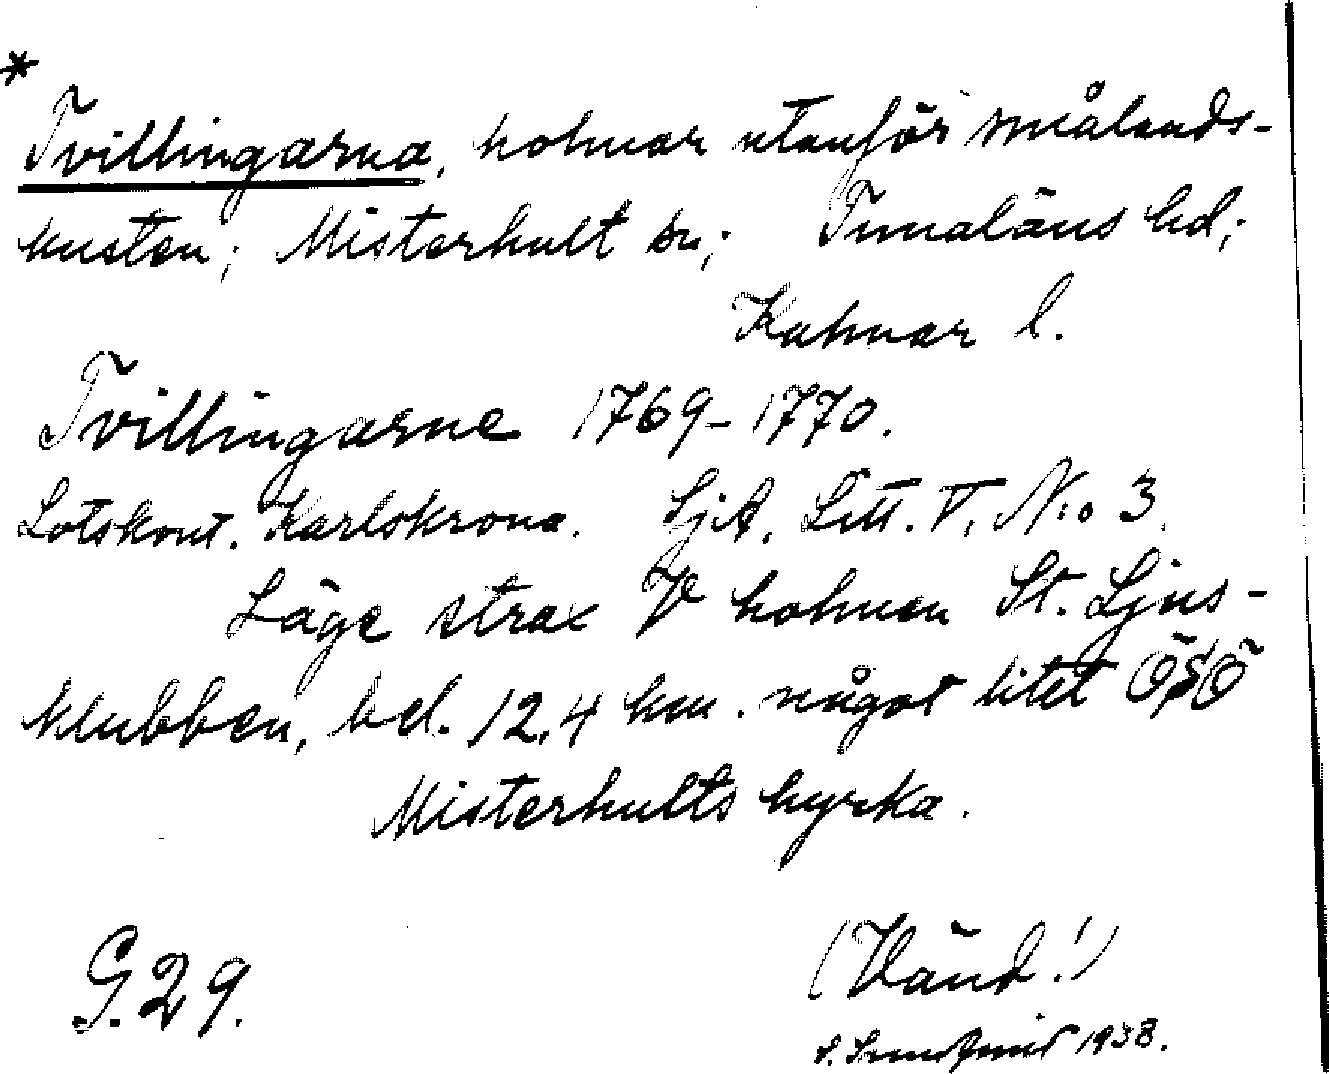 *
Tvillingarna, holmar utanför smålands-
kusten; Misterhult sn; Tunaläns hd;
Kalmar l.
Tvillingarne 1769-1770.
Lotskont. Karlskrona. SjA. Litt. V. N:o 3.
Läge strax V holmen St. Ljus-
klubben, bel. 12,4 km. något litet ÖSÖ
Misterhults kyrka.
G.29.
(Vänd!)
1938.